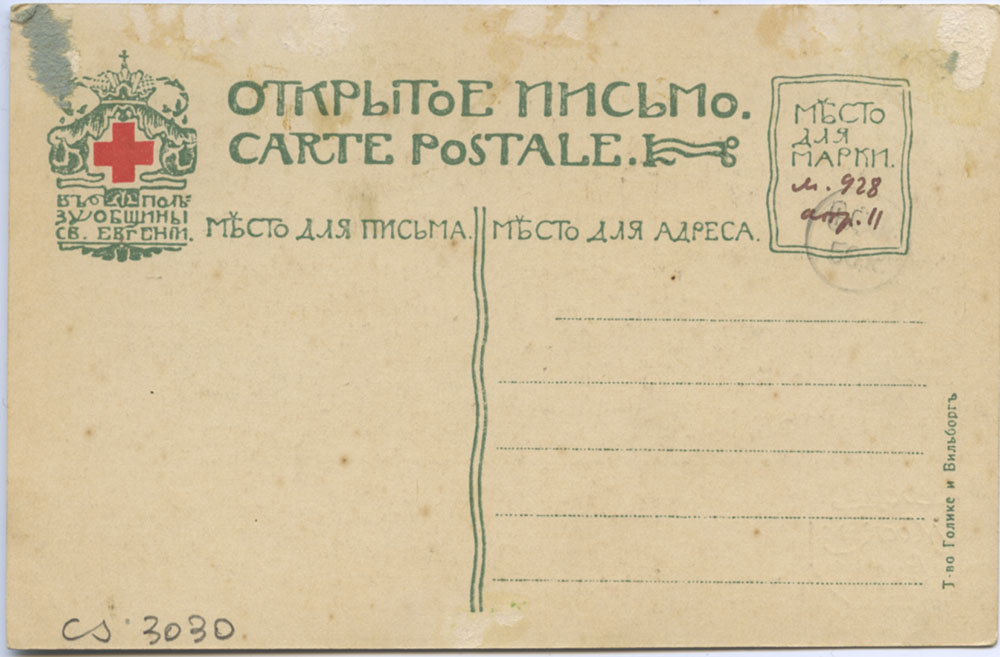 ОТКРЫТОЕ ПИСЬМО.
CARTE POSTALE.
ВЪ ПОЛЬ-
ЗУ ОБЩИНЫ
СВ. ЕВГЕНІИ.
МѢСТО
ДЛЯ
МАРКИ.
м. 928
МѢСТО ДЛЯ ПИСЬМА.
МѢСТО ДЛЯ АДРЕСА.
Т-во Голике и Вильборгъ
CS 3030